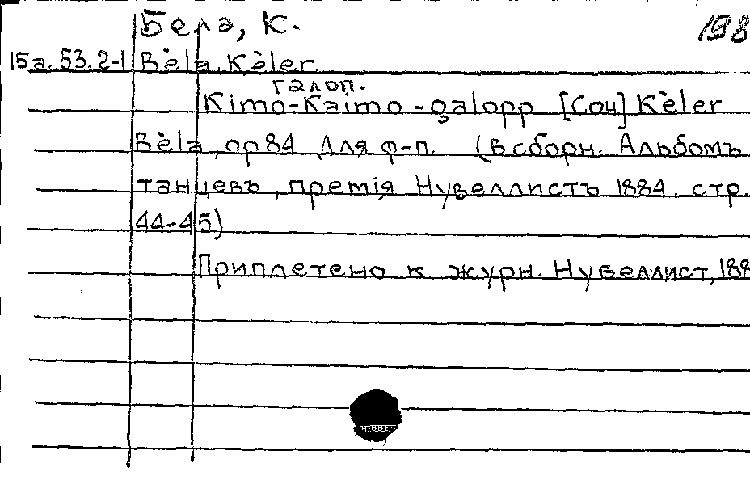 Бела, К.
198
15а.53.2-1 Bèla, Kèler
галоп.
Kimo-Kaimo-galopp [Соч] Kèler
Bèla, op 84 Для ф-п. (В сборн. Альбомъ
танцевъ, премія Нувеллистъ 1884. стр.
44-45)
Приплетено к журн. Нувеллист, 188